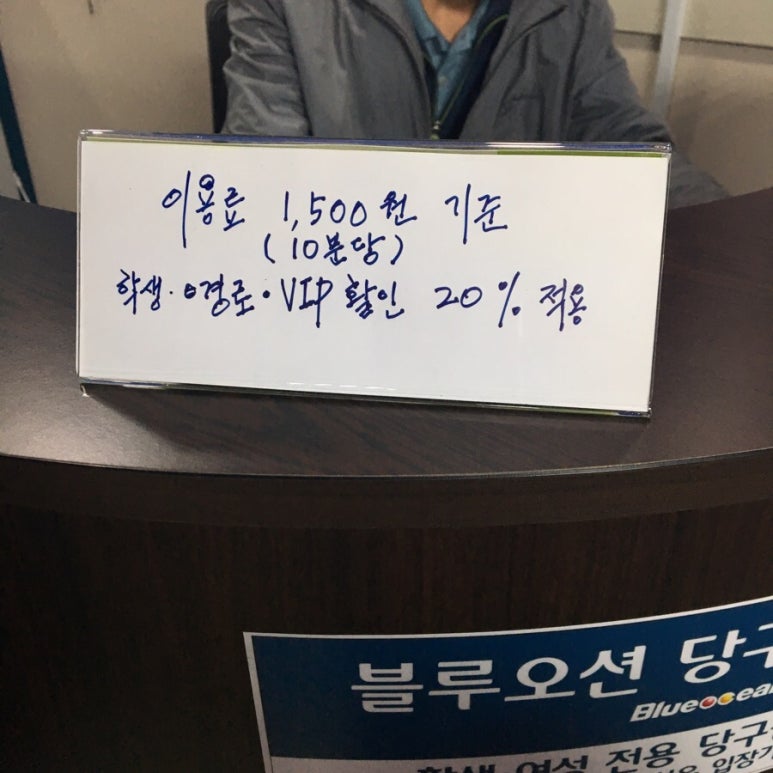 이용료 1,500원 기준
(10분당)
학생·경로·VIP 할인 20% 적용
블루오션 당구
Blueocea
학생 여성 전용 당구
입장